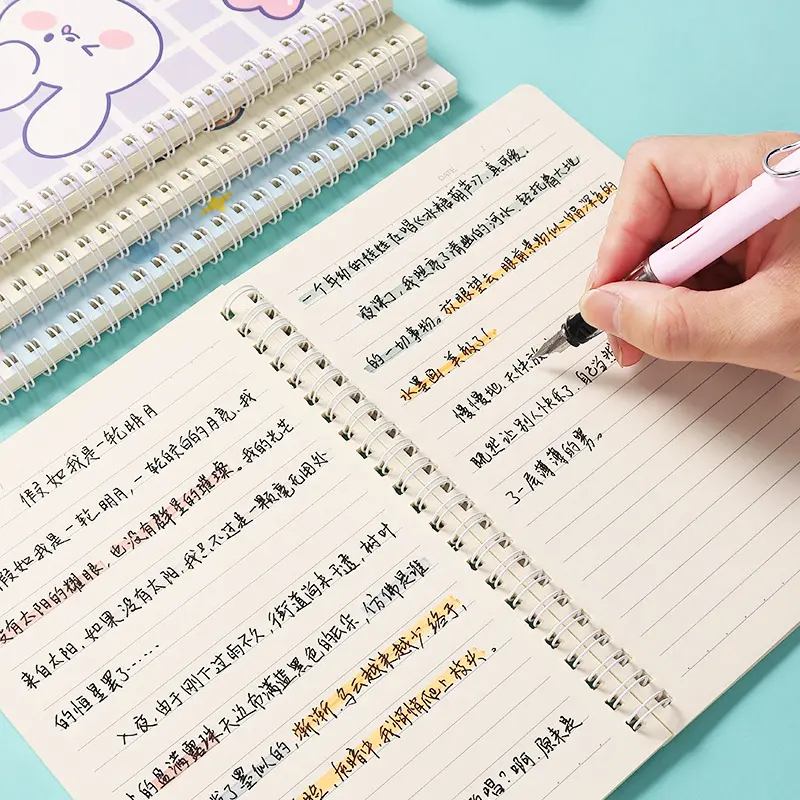 假如我是一轮明月
假如我是一轮明月,一轮皎白的月亮。我
没有太阳的耀眼,也没有群星的璀璨。我的光芒
来自太阳,如果没有太阳,我只不过是一颗毫无用处
的恒星罢了……
入夜,由于刚下过雨不久,街道尚未干透,树叶
的盈满露珠。天边布满蓝黑色的云朵,仿佛是谁
了墨似的,渐渐,乌云越来越少,终于,
灰暗中,我悄悄爬上枝头。
唱?啊,原来是
DATE
一个年幼的娃娃在唱《冰糖葫芦》,真可爱。
夜深了,我照亮了清幽的河水,轻抚着大地
的一切事物。放眼望去,眼前景物似一幅深色的
水墨画,美极了!
慢慢地,天快
既然让别人快乐了,自己当
了一层薄薄的雾。